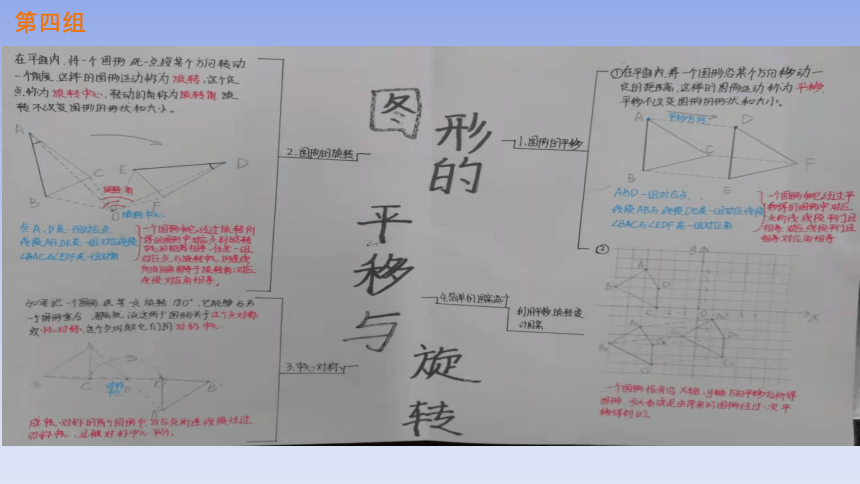 第四组
图形的平移与旋转
在平面内,将一个图形绕一点按某个方向转动
一个角度,这样的图形运动称为旋转,这个定
点称为旋转中心,转动的角称为旋转角,旋
转不改变图形的形状和大小。
A
B
C
E
D
F
旋转角
O
旋转中心
点A、D是一组对应点
线段AB、DE是一组对应线段
∠BAC与∠EDF是一组对应角
一个图形和它经过旋转所
得的图形中,对应点到旋转
中心的距离相等,任意一组
对应点与旋转中心的连线
所成的角都等于旋转角;对应
线段、对应角相等。
2.图形的旋转
如果把一个图形绕某一点旋转180°,它能够与另
一个图形重合,那么就说这两个图形关于这个点对称
或中心对称,这个点叫做它们的对称中心。
B
C
O
B₁
A₁
对称
中心
成中心对称的两个图形中,对应点所连线段经过
对称中心,且被对称中心平分。
3.中心对称
1.图形的平移
①在平面内,将一个图形沿某个方向移动一
定的距离,这样的图形运动称为平移,
平移不改变图形的形状和大小。
A
平移方向
D
B
C
E
F
A与D一组对应点
线段AB与线段DE是一组对应线段
∠BAC与∠EDF是一组对应角
一个图形和它经过平
移所得的图形中,对应
点所连线段平行且
相等,对应线段平行且
相等,对应角相等
②
y
A
B
D
C
O
X
一个图形依次沿X轴、y轴方向平移后所得
图形,可以看成是由原来的图形经过一次平
移得到的。
4.简单的图案设计
利用平移、旋转设
计图案